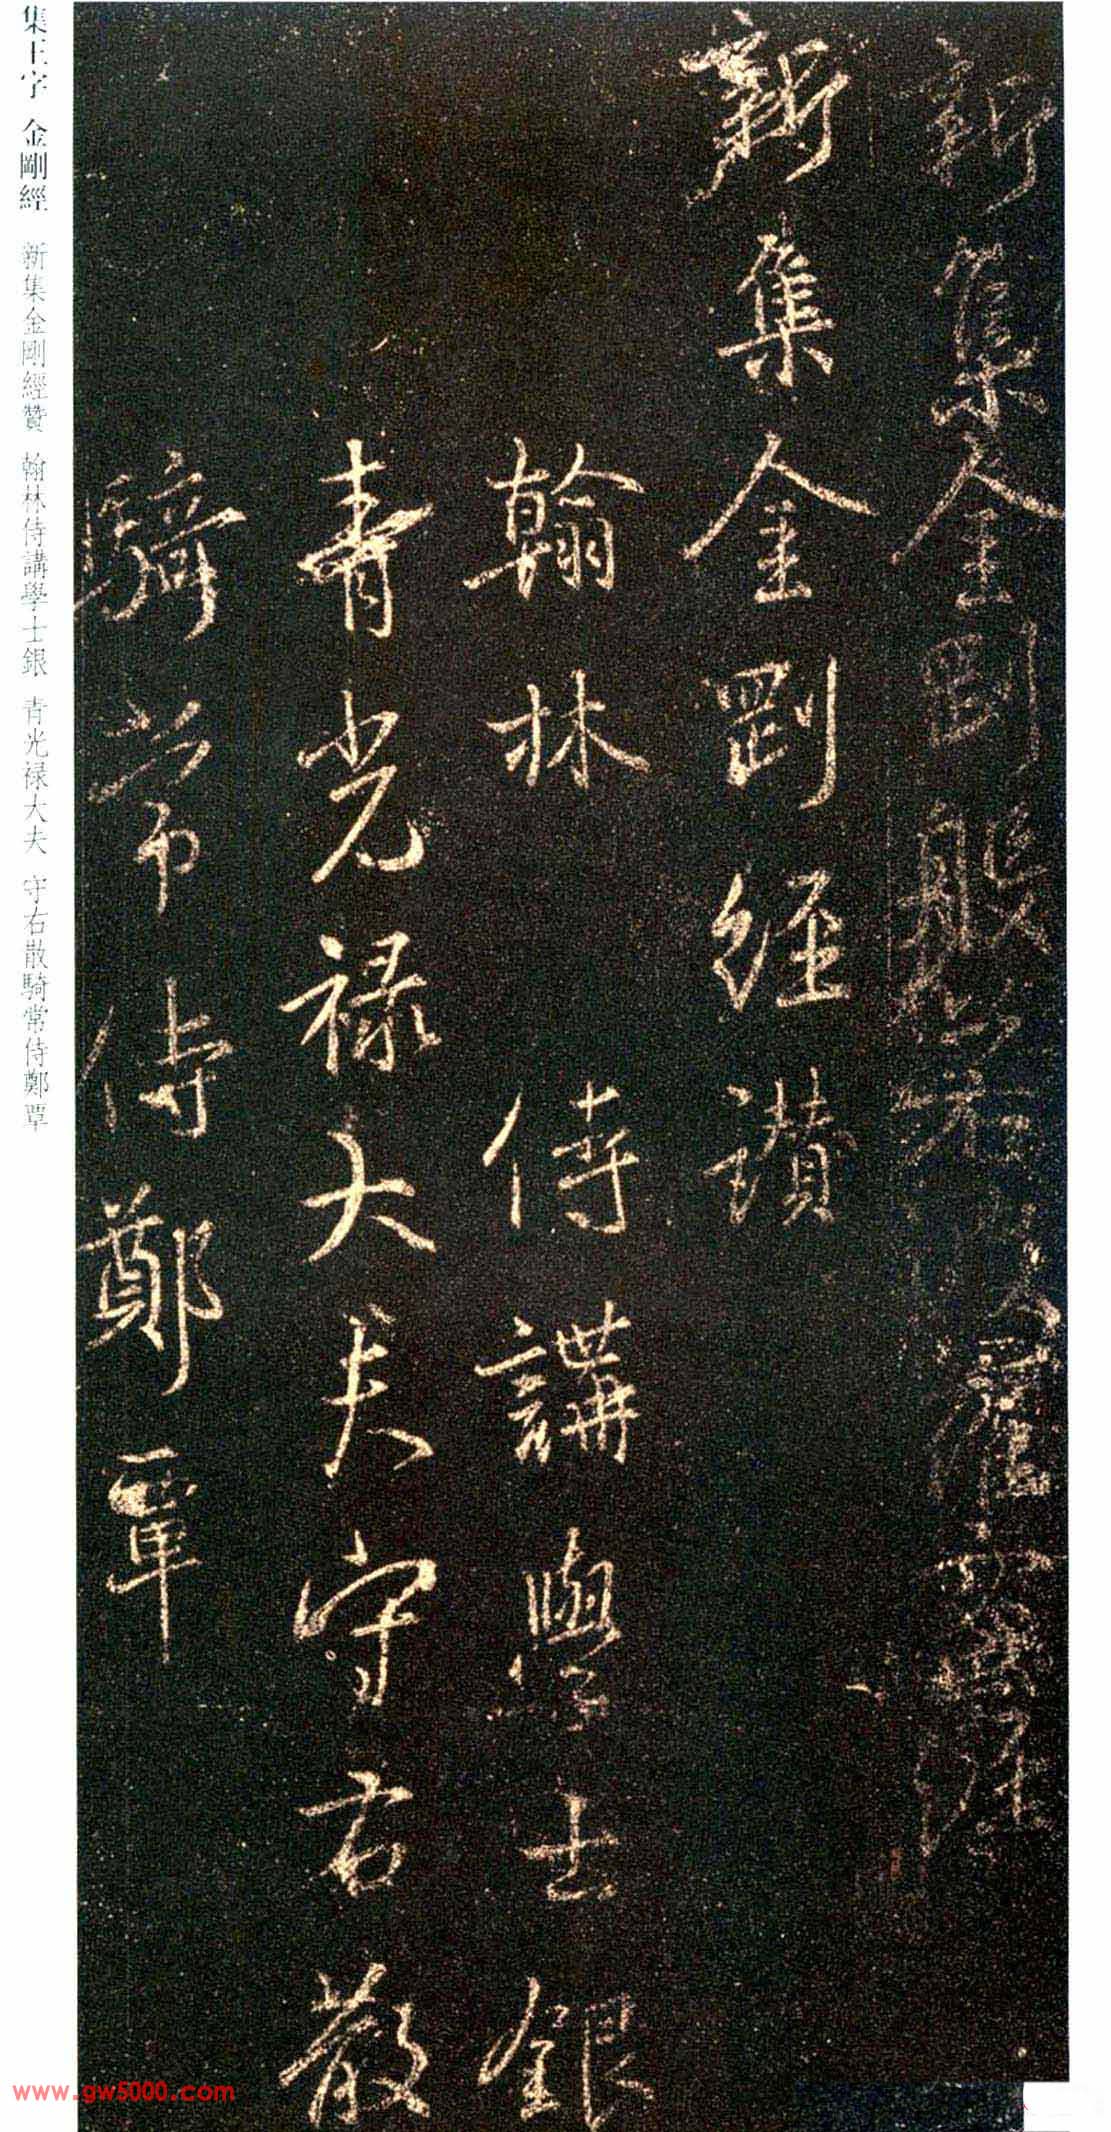 新集金剛般若波羅蜜經
新集金剛經讚
翰林侍講學士銀
青光禄大夫守右散
騎常侍鄭覃
集王字 金剛經 新集金剛經贊 翰林侍講學士銀 青光禄大夫 守右散騎常侍鄭覃
www.gw5000.com